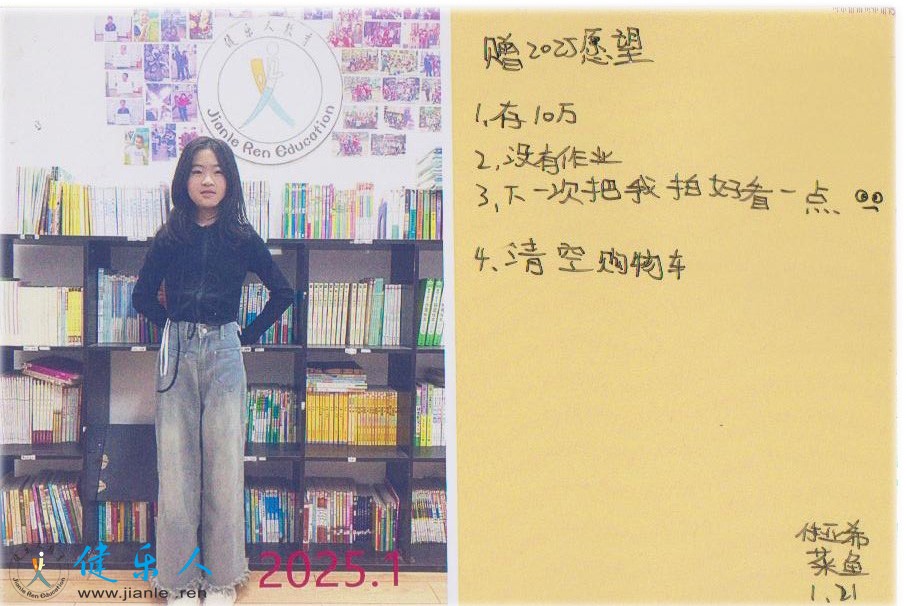 健乐人教育
Jianle Ren Education
健乐人
www.jianle.ren
2025.1
赠2025愿望
1、存10万
2、没有作业
3、下一次把我拍好看一点
4、清空购物车
亚希
菜鱼
1.21